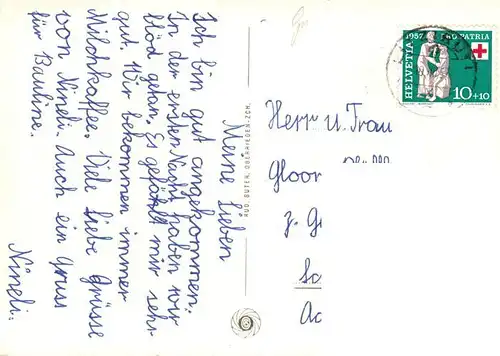 Meine Lieben
Ich bin gut angekommen.
In der ersten Nacht haben wir
blöd getan. Es gefällt mir sehr
gut. Wir bekommen immer
Milchkaffee. Viele liebe Grüsse
von Nineli. Auch ein Gruss
für Bauline.
Nineli.
HELVETIA
1957 PRO PATRIA
10+10
Herr u. Frau
Gloor
z. G
So
Aa